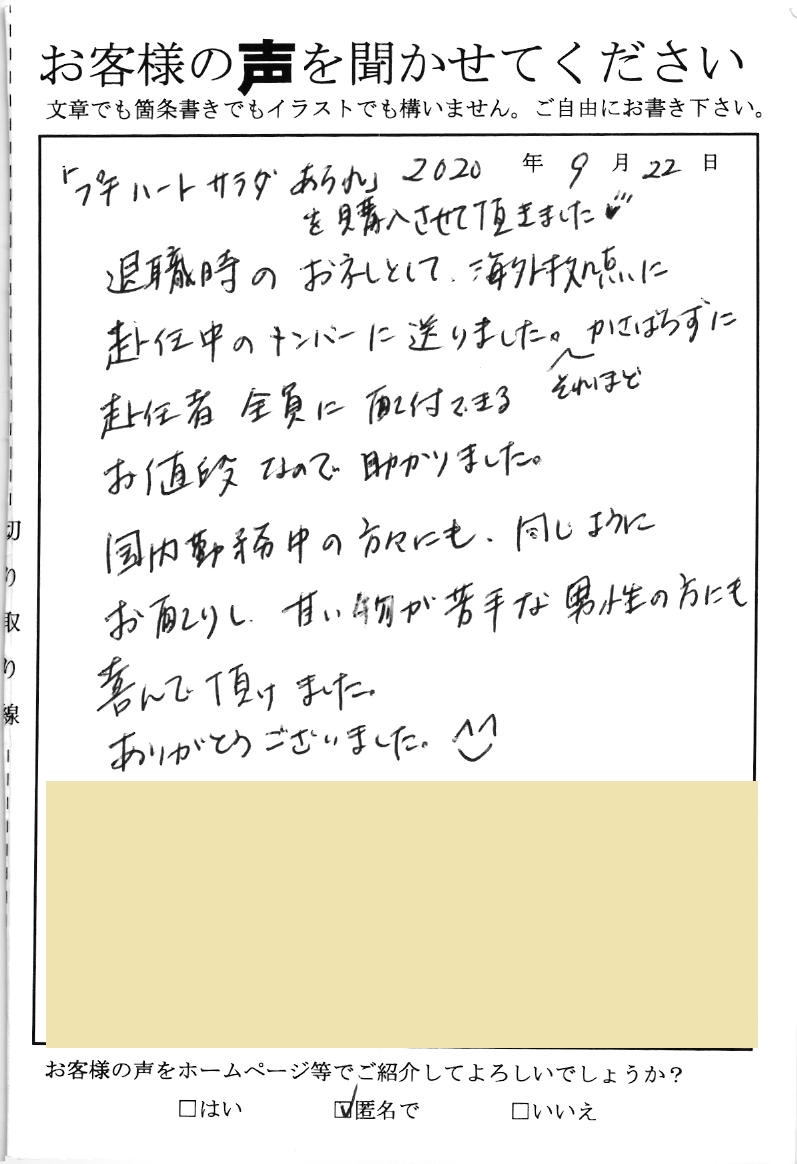 お客様の声を聞かせてください
文章でも箇条書きでもイラストでも構いません。ご自由にお書き下さい。
「プチハートサラダ あられ」 2020 年 9 月 22 日
を購入させて頂きました
退職時の お礼として、海外拠点に
赴任中のメンバーに送りました。かさばらずに
赴任者 全員に 配付できる それほど
お値段 なので 助かりました。
国内勤務中の方々にも、同じように
お配りし、甘い物が苦手な男性の方にも
喜んで頂けました。
ありがとうございました。
切り取り線
お客様の声をホームページ等でご紹介してよろしいでしょうか？
□はい ☑匿名で □いいえ